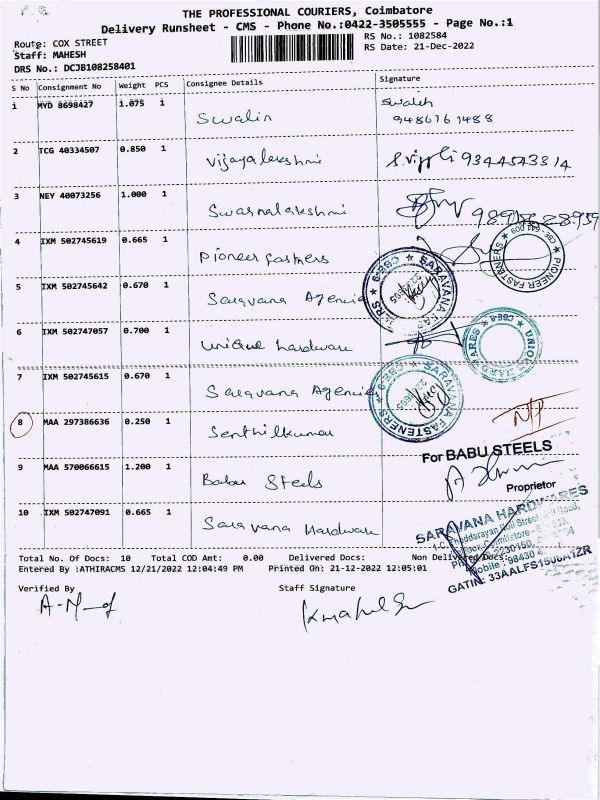 THE PROFESSIONAL COURIERS, Coimbatore
Delivery Runsheet - CMS - Phone No.:0422-3505555 - Page No.:1
Route: COX STREET
RS No.: 1082584
Staff: MAHESH
RS Date: 21-Dec-2022
DRS No.: DCJB108258401
S No Consignment No Weight PCS Consignee Details Signature
1 MYD 8698427 1.075 1 Swalin
2 TCG 40334507 0.850 1 Vijayalakshmi
3 NEY 40073256 1.000 1 Swarnalakshmi
4 IXM 502745619 0.665 1 Pioneer Fastners
PIONEER FASTENERS
5 IXM 502745642 0.670 1 Saravana Agencies
SARAVANA
6 IXM 502747057 0.700 1 Unique hardware
7 IXM 502745615 0.670 1 Saravana Agencies
SARAVANA FASTENERS
8 MAA 297386636 0.250 1 Senthilkumar
9 MAA 570066615 1.200 1 Babu Steels
For BABU STEELS
Proprietor
10 IXM 502747091 0.665 1 Saravana Hardware
SARAVANA HARDWARES
Total No. Of Docs: 10 Total COD Amt: 0.00 Delivered Docs: Non Delivered Docs:
Entered By :ATHIRACMS 12/21/2022 12:04:49 PM Printed On: 21-12-2022 12:05:01
Verified By Staff Signature